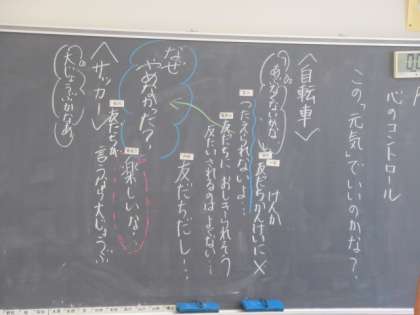 心のコントロール
この「元気」でいいのかな？
〈自転車〉
あぶないかな
けんか
友だちかんけいに×
つたえられないよ…
友だちにおしきられそう
反たいされるのはよくない…
友だちだし…
なぜ
やめなかった？
楽しいな…
友だちが
言うなら大じょうぶ…
〈サッカー〉
大じょうぶかなあ